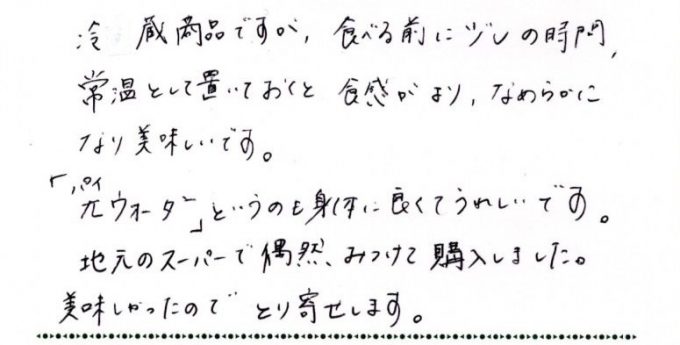 冷蔵商品ですが、食べる前に少しの時間、
常温として置いておくと食感がより、なめらかに
なり美味しいです。
パイ
「πウォーター」というのも身体に良くてうれしいです。
地元のスーパーで偶然、みつけて購入しました。
美味しかったのでとり寄せします。